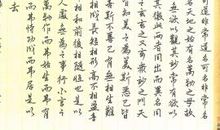 道非常道名可名非常名
地之始有名萬物之母故
無欲以觀其妙常有欲以
徼此兩者同出而異名同
玄之又玄眾妙之門
知美之為美斯惡已皆
善斯不善已有無相生難
長短相形高下相盈音
相和前後相隨恒也是以
人處無為之事行不言之
萬物作而弗始生而弗
而弗恃功成而弗居是以
去